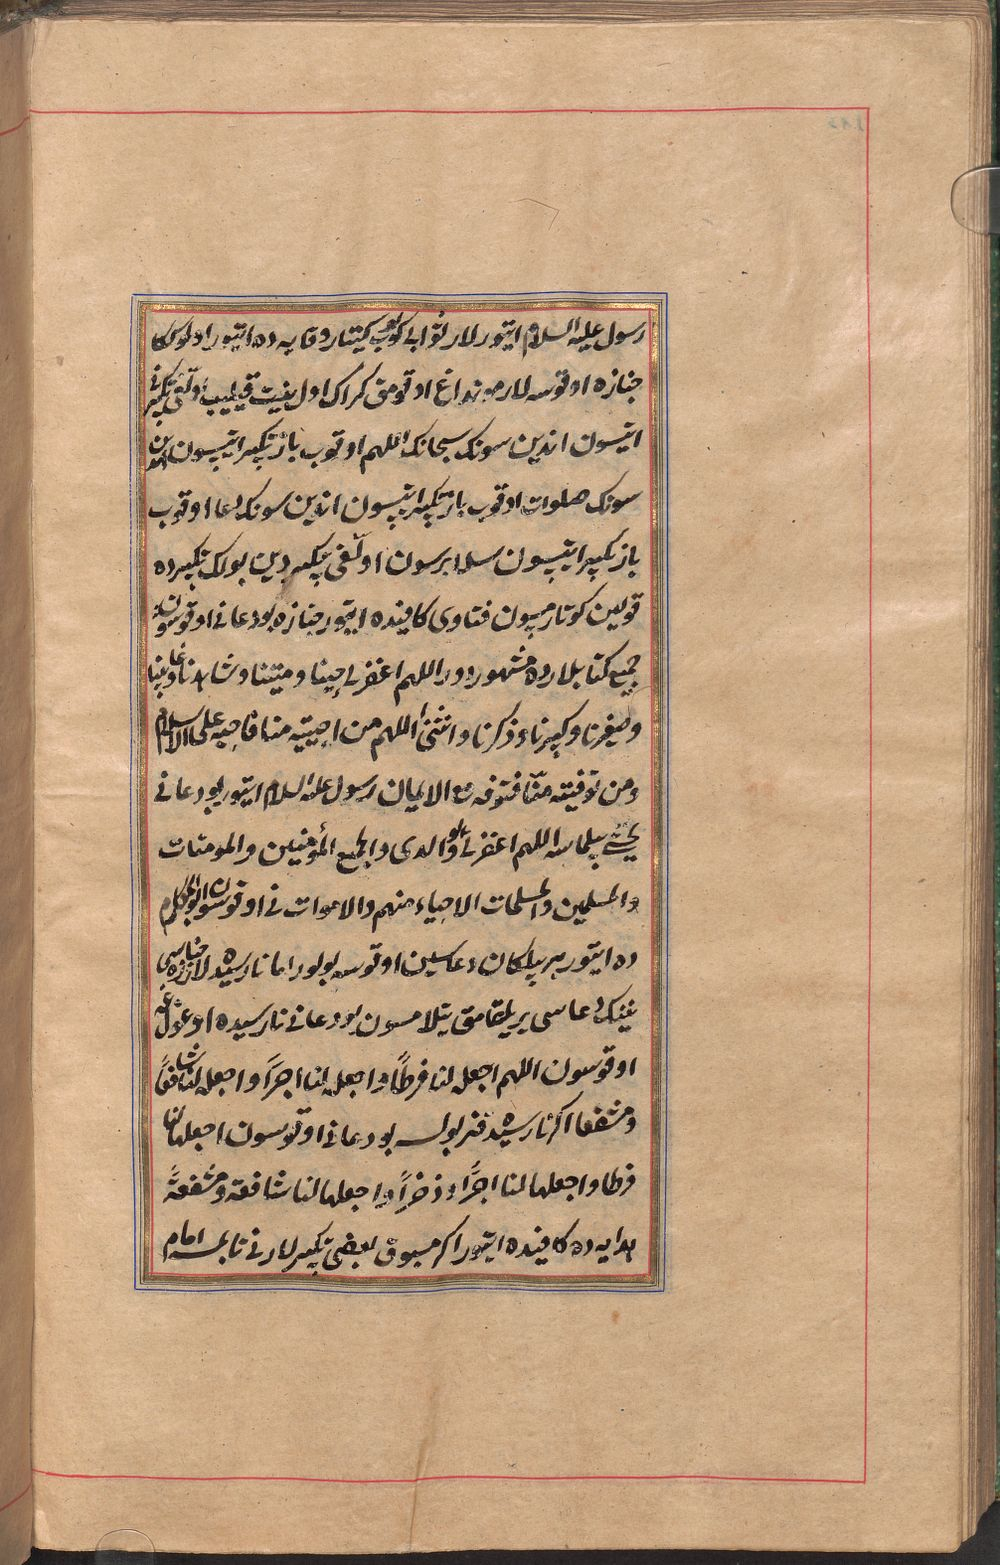 رسول علیه السلام ایتور لار ثوابی کوب کیتار وقایه ده ایتور اول کا
جنازه اوقوسه لار مونداغ اوقومق کراک اول نیت قیلیب اولقی تکبیرنی
ایتسون اندین سونک سبحانک اللهم اوقوب باز تکبیر ایتسون اندین
سونک صلوات اوقوب باز تکبیر ایتسون اندین سونک دعا اوقوب
باز تکبیر ایتسون سلام برسون اولقی تکبیردین بولک تکبیرده
قولین کوتارمسون فتاوی کافیده ایتور جنازه بو دعانی اوقوسون
جمیع کتابلارده مشهور دور اللهم اغفر لحینا ومیتنا وشاهدنا وغائبنا
وصغیرنا وکبیرنا وذکرنا وانثنا اللهم من احییته منا فاحیه علی الاسلام
ومن توفیته منا فتوفه علی الایمان رسول علیه السلام ایتور بو دعانی
یخشی بیلماسه اللهم اغفرلی ولوالدی ولجمیع المؤمنین والمومنات
والمسلمین والمسلمات الاحیاء منهم والاموات نی اوقوسون ابوالمکارم
ده ایتور هر بیلکان دعاسین اوقوسه بولور اما نارسیده لار جنازه سی
نینک دعاسی بریلقامق تیلامسون بو دعانی نارسیده اوغول غه
اوقوسون اللهم اجعله لنا فرطاً واجعله لنا اجراً واجعله لنا شافعاً
ومشفعا اکر نارسیده قیز بولسه بو دعانی اوقوسون اجعلها لنا
فرطا واجعلها لنا اجراً وذخراً واجعلها لنا شافعة ومشفعةً
هدایه ده کافیده ایتور اکر مسبوق بعضی تکبیرلارنی تابسه امام